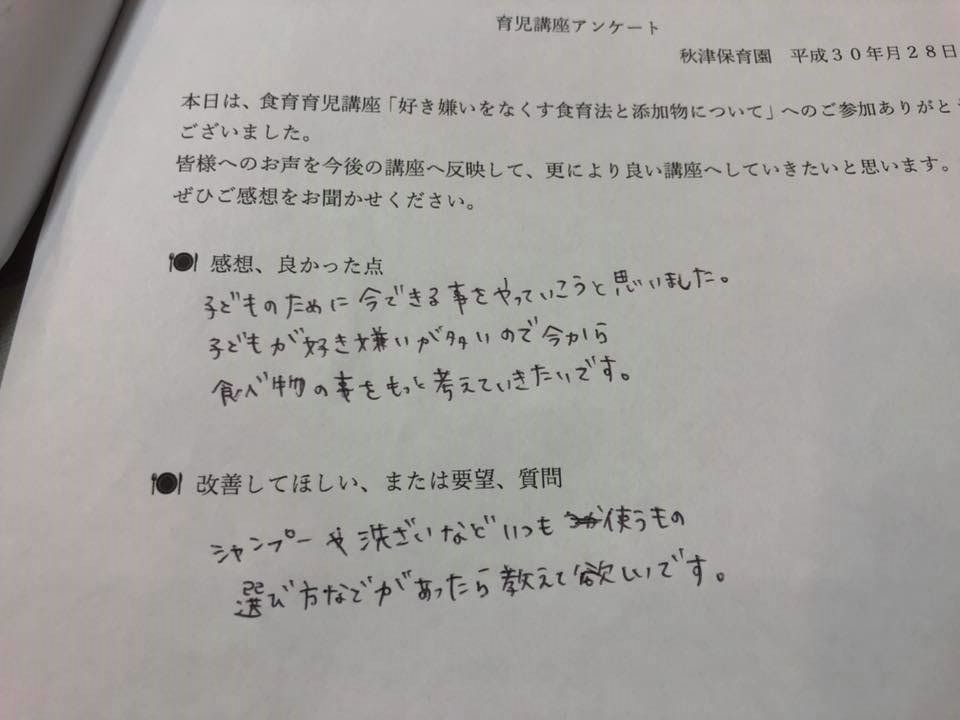 育児講座アンケート
秋津保育園 平成30年月28日
本日は、食育育児講座「好き嫌いをなくす食育法と添加物について」へのご参加ありがとう
ございました。
皆様へのお声を今後の講座へ反映して、更により良い講座へしていきたいと思います。
ぜひご感想をお聞かせください。
感想、良かった点
子どものために今できる事をやっていこうと思いました。
子どもが好き嫌いが多いので今から
食べ物の事をもっと考えていきたいです。
改善してほしい、または要望、質問
シャンプーや洗ざいなどいつも使うもの
選び方なでがあったら教えて欲しいです。